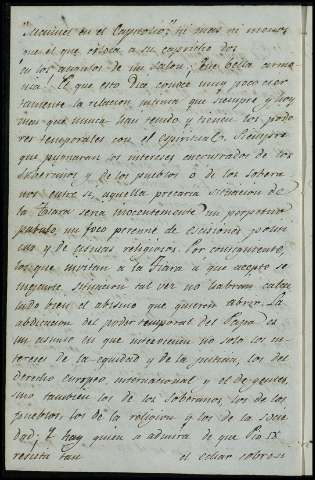 Manuel en el Capitolio", ni mas ni menos
que el que coloca a su capricho dos
en los angulos de un salon; Que bella armo-
nia. El que esto dice conoce muy poco cier
tamente la relacion intima que siempre y hoy
mas que nunca han tenido y tienen los pode
res temporales con el espiritual. Siempre
que pugnaran los intereses encontrados de los
soberanos y de los pueblos ó de los sobera
nos entre si aquella precaria situacion de
la Tiara seria inocentemente un perpetuo
pabulo, un foco perenne de escisiones politi
cas y de cismas religiosos. Por consiguiente,
los que invitan a la Tiara a que acepte se
mejante situacion tal vez no habran calcu
lado bien el abismo que quieren abrir. La
abdicacion del poder temporal del Papa es
un asunto en que intervienen no solo los in-
tereses de la equidad y de la justicia, los del
derecho europeo internacional y el de gentes,
sino tambien los de los Soberanos, los de los
pueblos, los de la religion y los de la socie
dad; Y hay quien se admira de que Pio IX
resista tan el echar sobre su